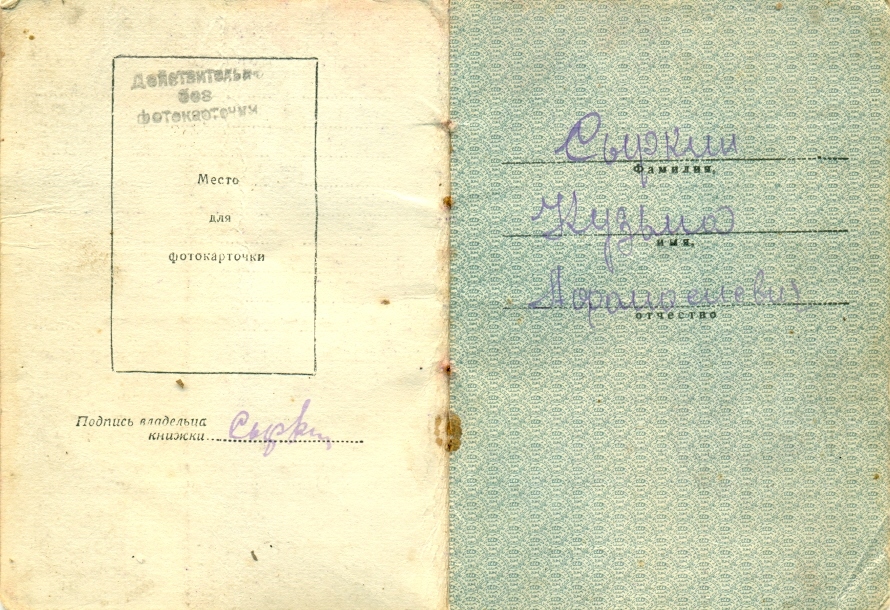 Действительно
без
фотокарточки
Место
для
фотокарточки
Подпись владельца
книжки
Сыркин
Фамилия,
Кузьма
имя,
отчество